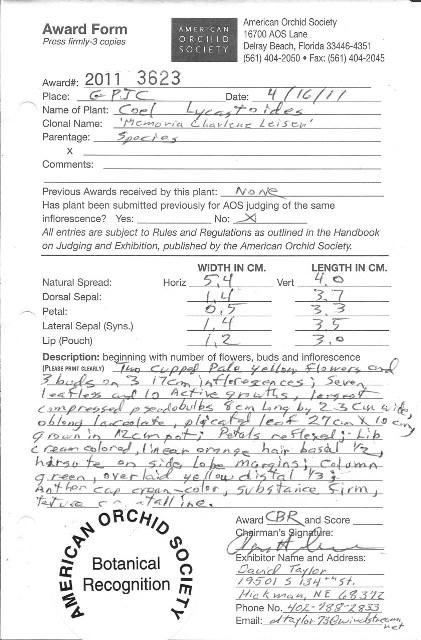 Award Form
Press firmly-3 copies
AMERICAN
ORCHID
SOCIETY
American Orchid Society
16700 AOS Lane
Delray Beach, Florida 33446-4351
(561) 404-2050 • Fax: (561) 404-2045
Award#: 2011 3623
Place: GPJC Date: 4/16/11
Name of Plant: Coel Lycastoides
Clonal Name: 'Memoria Charlene Leisen'
Parentage: Species
x
Comments:
Previous Awards received by this plant: None
Has plant been submitted previously for AOS judging of the same
inflorescence? Yes: No: X
All entries are subject to Rules and Regulations as outlined in the Handbook
on Judging and Exhibition, published by the American Orchid Society.
WIDTH IN CM. LENGTH IN CM.
Natural Spread: Horiz 5.4 Vert 4.0
Dorsal Sepal: 1.4 3.7
Petal: 0.5 3.3
Lateral Sepal (Syns.) 1.4 3.5
Lip (Pouch) 1.2 3.0
Description: beginning with number of flowers, buds and inflorescence
(PLEASE PRINT CLEARLY) Two cupped Pale yellow flowers and
3 buds on 3 17cm inflorescences; Seven
leafless and 10 Active growths, largest
compressed pseudobulbs 8cm long by 2.3 cm wide,
oblong lanceolate, plicate leaf 27cm x 10 cm,
grown in 12cm pot; Petals reflexed; Lip
cream colored, linear orange hair basal 1/2,
hirsute on side lobe margins; column
green, overlaid yellow distal 1/3;
Anther cap cream-color, substance firm,
texture crystalline.
AMERICAN ORCHID SOCIETY
Botanical
Recognition
Award CBR and Score
Chairman's Signature:
Exhibitor Name and Address:
David Taylor
19501 S 134th St.
Hickman, NE 68372
Phone No. 402-788-2833
Email: dtaylor73@windstream.net